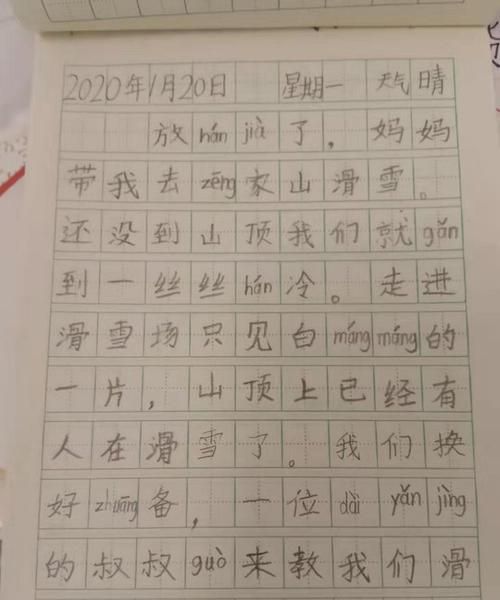 2020年1月20日 星期一 天气晴
放hán jià了，妈妈
带我去zēng家山滑雪。
还没到山顶我们就gǎn
到一丝丝hán冷。走进
滑雪场只见白máng máng的
一片，山顶上已经有
人在滑雪了。我们换
好zhuāng备，一位dài yǎn jìng
的叔叔guò来教我们滑